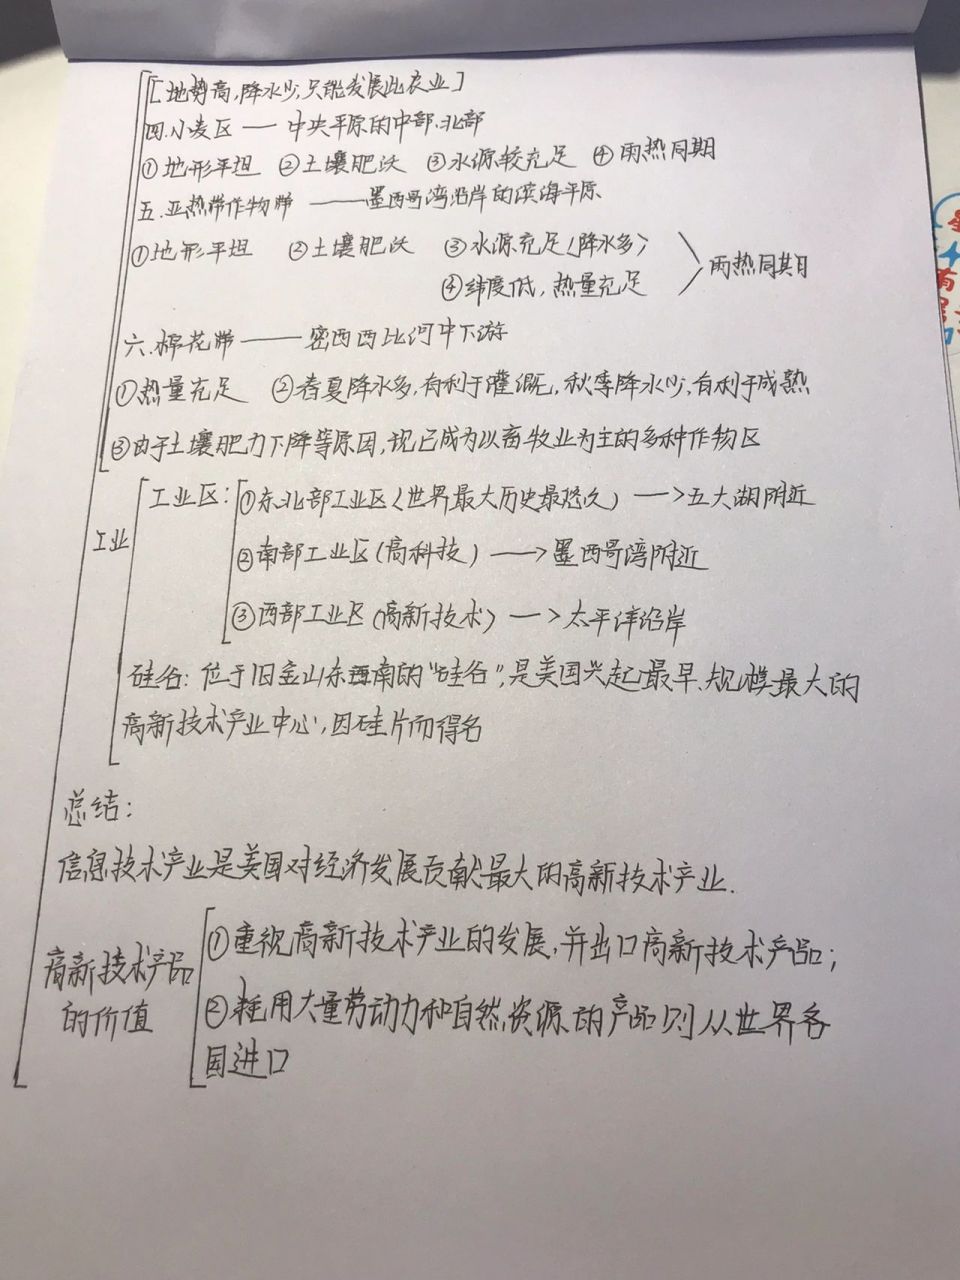 [地势高,降水少,只能发展此农业]
四.小麦区 — 中央平原的中部、北部
①地形平坦 ②土壤肥沃 ③水源较充足 ④雨热同期
五.亚热带作物带 ——墨西哥湾沿岸的滨海平原
①地形平坦 ②土壤肥沃 ③水源充足(降水多)
④纬度低,热量充足
雨热同期
六.棉花带——密西西比河中下游
①热量充足 ②春夏降水多,有利于灌溉,秋季降水少,有利于成熟
③由于土壤肥力下降等原因,现已成为以畜牧业为主的多种作物区
工业
工业区:①东北部工业区(世界最大历史最悠久)—>五大湖附近
②南部工业区(高科技)—>墨西哥湾附近
③西部工业区(高新技术)—>太平洋沿岸
硅谷:位于旧金山东南的"硅谷",是美国兴起最早、规模最大的
高新技术产业中心,因硅片而得名
总结:
信息技术产业是美国对经济发展贡献最大的高新技术产业.
高新技术产品
的价值
①重视高新技术产业的发展,并出口高新技术产品;
②耗用大量劳动力和自然资源的产品则从世界各
国进口
有